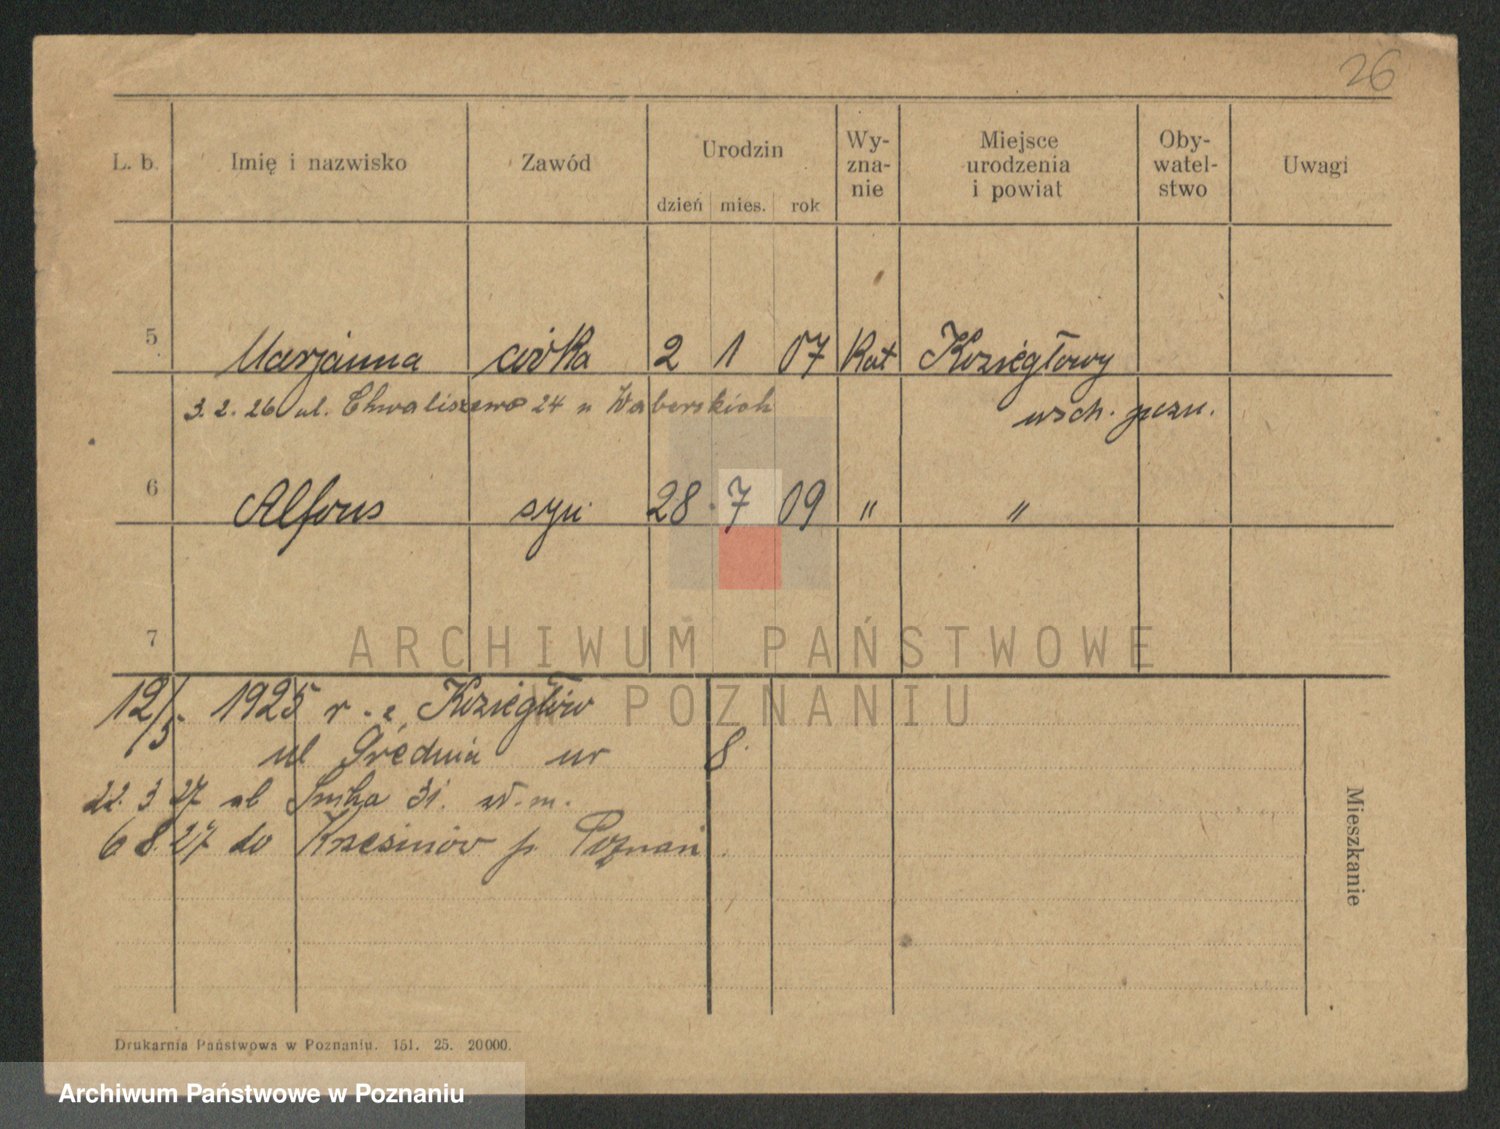 26
L. b. Imię i nazwisko Zawód Urodzin Wy-zna-nie Miejsce urodzenia i powiat Oby-watel-stwo Uwagi
dzień mies. rok
5 Marjanna córka 2 1 07 Kat Koziegłowy
3. 2. 26 ul. Chwaliszewo 24 u Waberskich wsch. pozn.
6 Alfons syn 28. 7 09 " "
7
ARCHIWUM PAŃSTWOWE
W POZNANIU
12/5. 1925 r. z Koziegłów
ul Średnia nr 8.
22. 3 27 ul 31. w. m.
6 8. 27 do Krzesinów p. Poznań
Mieszkanie
Drukarnia Państwowa w Poznaniu. 151. 25. 20000.
Archiwum Państwowe w Poznaniu